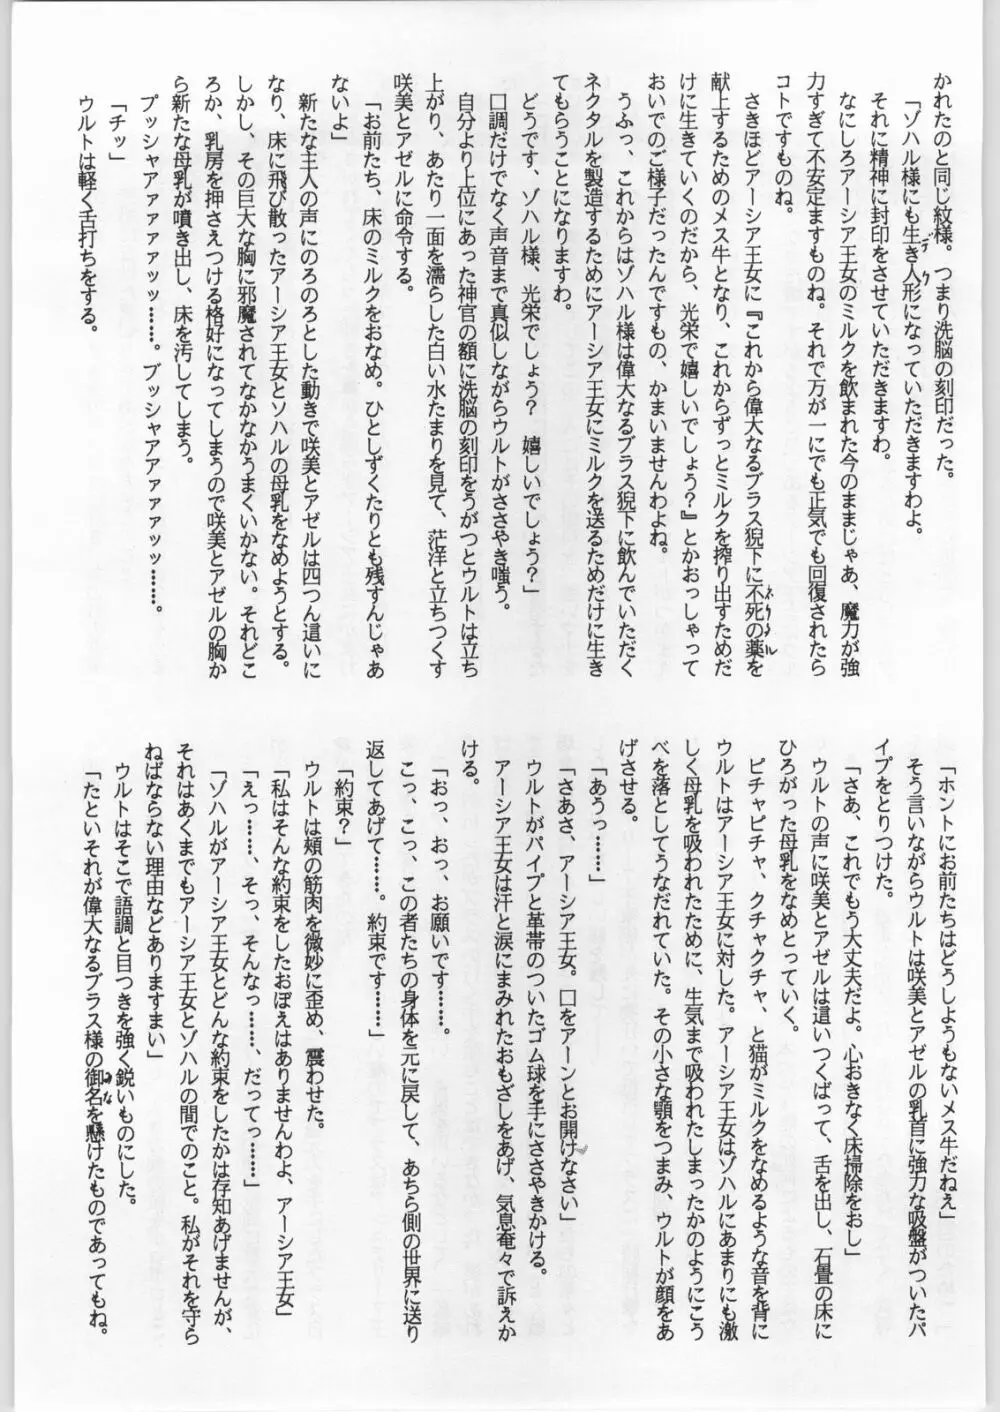 かれたのと同じ紋様。つまり洗脳の刻印だった。
「ゾハル様にも生き人形になっていただきますわよ。
それに精神に封印をさせていただきますわ。
なにしろアーシア王女のミルクを飲まれた今のままじゃあ、魔力が強
力すぎて不安定ますものね。それで万が一にでも正気でも回復されたら
コトですものね。
さきほどアーシア王女に『これから偉大なるブラス猊下に不死の薬を
献上するためのメス牛となり、これからずっとミルクを搾り出すためだ
けに生きていくのだから、光栄で嬉しいでしょう？』とかおっしゃって
おいでのご様子だったんですもの、かまいませんわよね。
うふっ、これからはゾハル様は偉大なるブラス猊下に飲んでいただく
ネクタルを製造するためにアーシア王女にミルクを送るためだけに生き
てもらうことになりますわ。
どうです、ゾハル様、光栄でしょう？　嬉しいでしょう？」
口調だけでなく声音まで真似しながらウルトがささやき嗤う。
自分より上位にあった神官の額に洗脳の刻印をうがつとウルトは立ち
上がり、あたり一面を濡らした白い水たまりを見て、茫洋と立ちつくす
咲美とアゼルに命令する。
「お前たち、床のミルクをおなめ。ひとしずくたりとも残すんじゃあ
ないよ」
新たな主人の声にのろのろとした動きで咲美とアゼルは四つん這いに
なり、床に飛び散ったアーシア王女とソハルの母乳をなめようとする。
しかし、その巨大な胸に邪魔されてなかなかうまくいかない。それどこ
ろか、乳房を押さえつける格好になってしまうので咲美とアゼルの胸か
ら新たな母乳が噴き出し、床を汚してしまう。
プッシャアァァァァッッ……。ブッシャアアァァァッッ……。
「チッ」
ウルトは軽く舌打ちをする。
「ホントにお前たちはどうしようもないメス牛だねぇ」
そう言いながらウルトは咲美とアゼルの乳首に強力な吸盤がついたパ
イプをとりつけた。
「さあ、これでもう大丈夫だよ。心おきなく床掃除をおし」
ウルトの声に咲美とアゼルは這いつくばって、舌を出し、石畳の床に
ひろがった母乳をなめとっていく。
ピチャピチャ、クチャクチャ、と猫がミルクをなめるような音を背に
ウルトはアーシア王女に対した。アーシア王女はゾハルにあまりにも激
しく母乳を吸われたために、生気まで吸われたしまったかのようにこう
べを落としてうなだれていた。その小さな顎をつまみ、ウルトが顔をあ
げさせる。
「あうっ……」
「さあさ、アーシア王女。口をアーンとお開けなさい」
ウルトがパイプと革帯のついたゴム球を手にささやきかける。
アーシア王女は汗と涙にまみれたおもざしをあげ、気息奄々で訴えか
ける。
「おっ、おっ、お願いです……。
こっ、こっ、こっ、この者たちの身体を元に戻して、あちら側の世界に送り
返してあげて……。約束です……」
「約束？」
ウルトは頬の筋肉を微妙に歪め、震わせた。
「私はそんな約束をしたおぼえはありませんわよ、アーシア王女」
「えっ……、そっ、そんなっ……、だってっ……」
「ゾハルがアーシア王女とどんな約束をしたかは存知あげませんが、
それはあくまでもアーシア王女とゾハルの間でのこと。私がそれを守ら
ねばならない理由などありますまい」
ウルトはそこで語調と目つきを強く鋭いものにした。
「たといそれが偉大なるブラス様の御名を懸けたものであってもね。